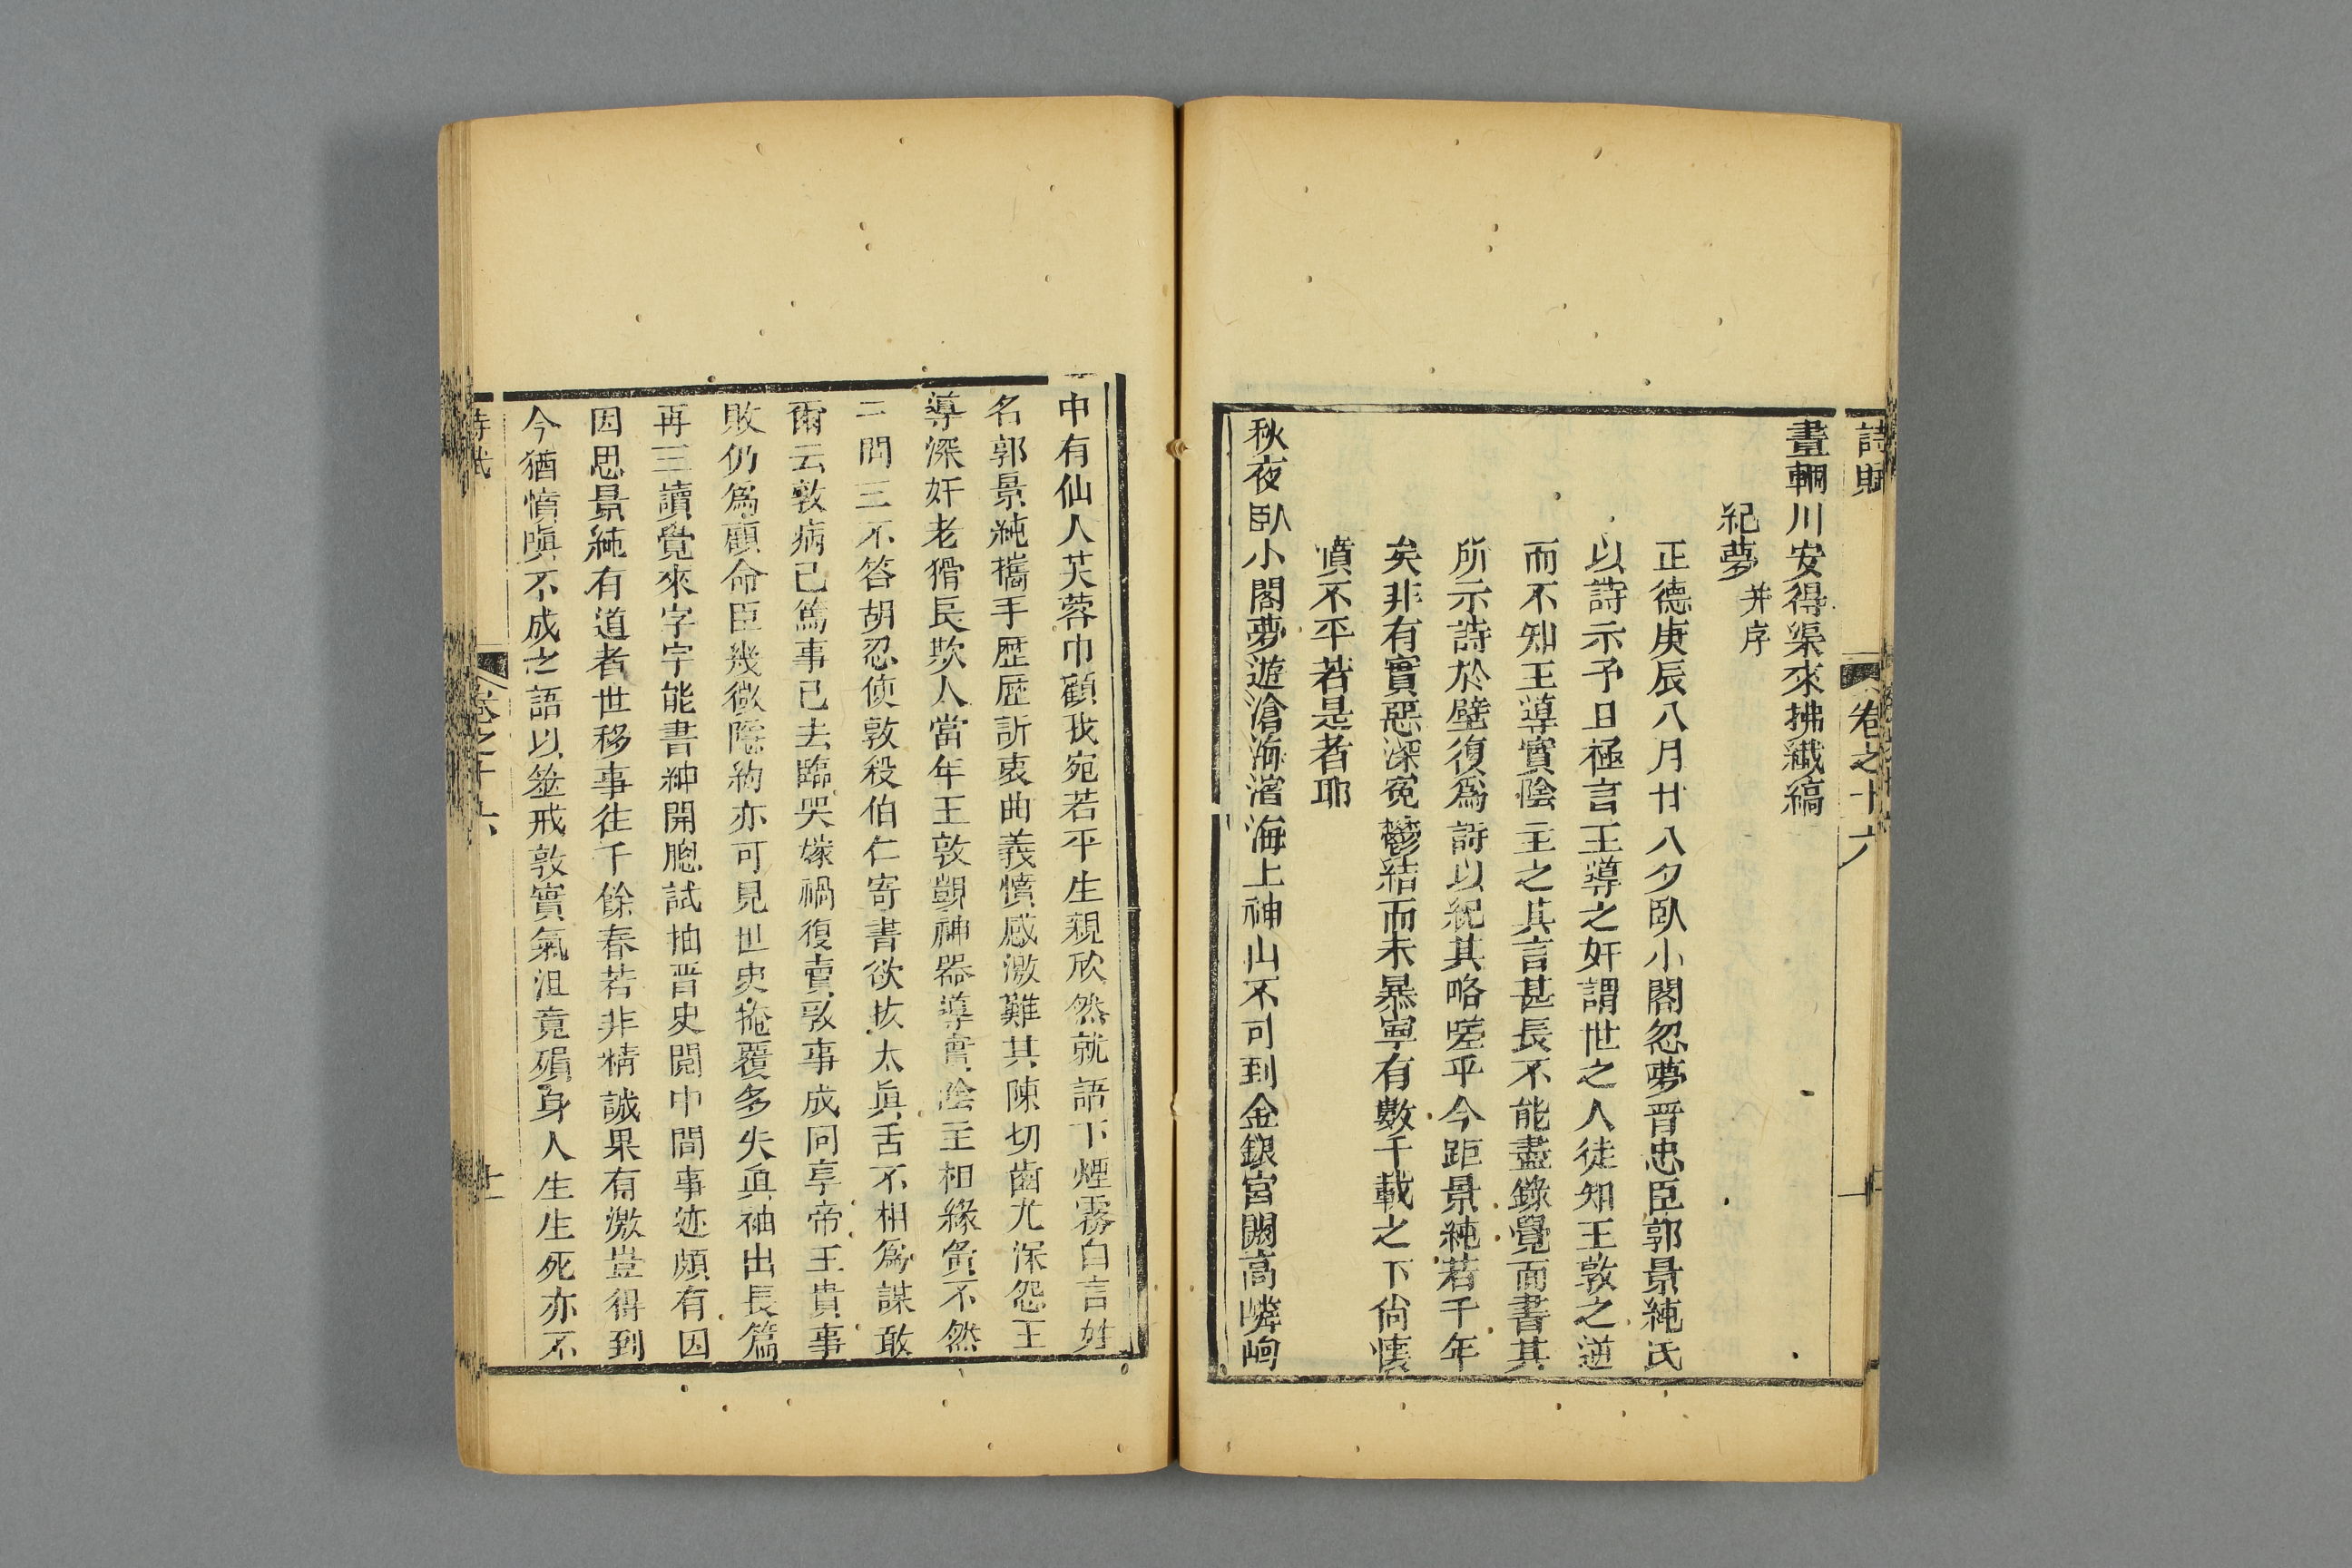 詩賦 卷之十六
畫輞川安得渠來拂纖縞
紀夢 并序
正德庚辰八月廿八夕臥小閣忽夢晋忠臣郭景純氏
以詩示予且極言王導之奸謂世之人徒知王敦之逆
而不知王導實陰主之其言甚長不能盡錄覺而書其
所示詩於壁復爲詩以紀其略嗟乎今距景純若千年
矣非有實惡深冤鬱結而未暴寧有數千載之下尙懷
憤不平若是者耶
秋夜臥小閣夢遊滄海濱海上神山不可到金銀宮闕高嶙峋
中有仙人芙蓉巾顧我宛若平生親欣然就語下煙霧自言姓
名郭景純攜手歷歷訴衷曲義憤感激難具陳切齒尤深怨王
導深奸老猾長欺人當年王敦覬神器導實陰主相緣夤不然
二問三不答胡忍使敦殺伯仁寄書欲拔太眞舌不相爲謀敢
爾云敦病已篤事已去臨哭嫁禍復賣敦事成同享帝王貴事
敗仍爲顧命臣幾微隱約亦可見世史掩覆多失眞袖出長篇
再三讀覺來字字能書紳開牕試抽晋史閱中間事迹頗有因
因思景純有道者世移事往千餘春若非精誠果有激豈得到
今猶憤嗔不成之語以筮戒敦實氣沮竟殞身人生生死亦不
詩賦 卷之十六